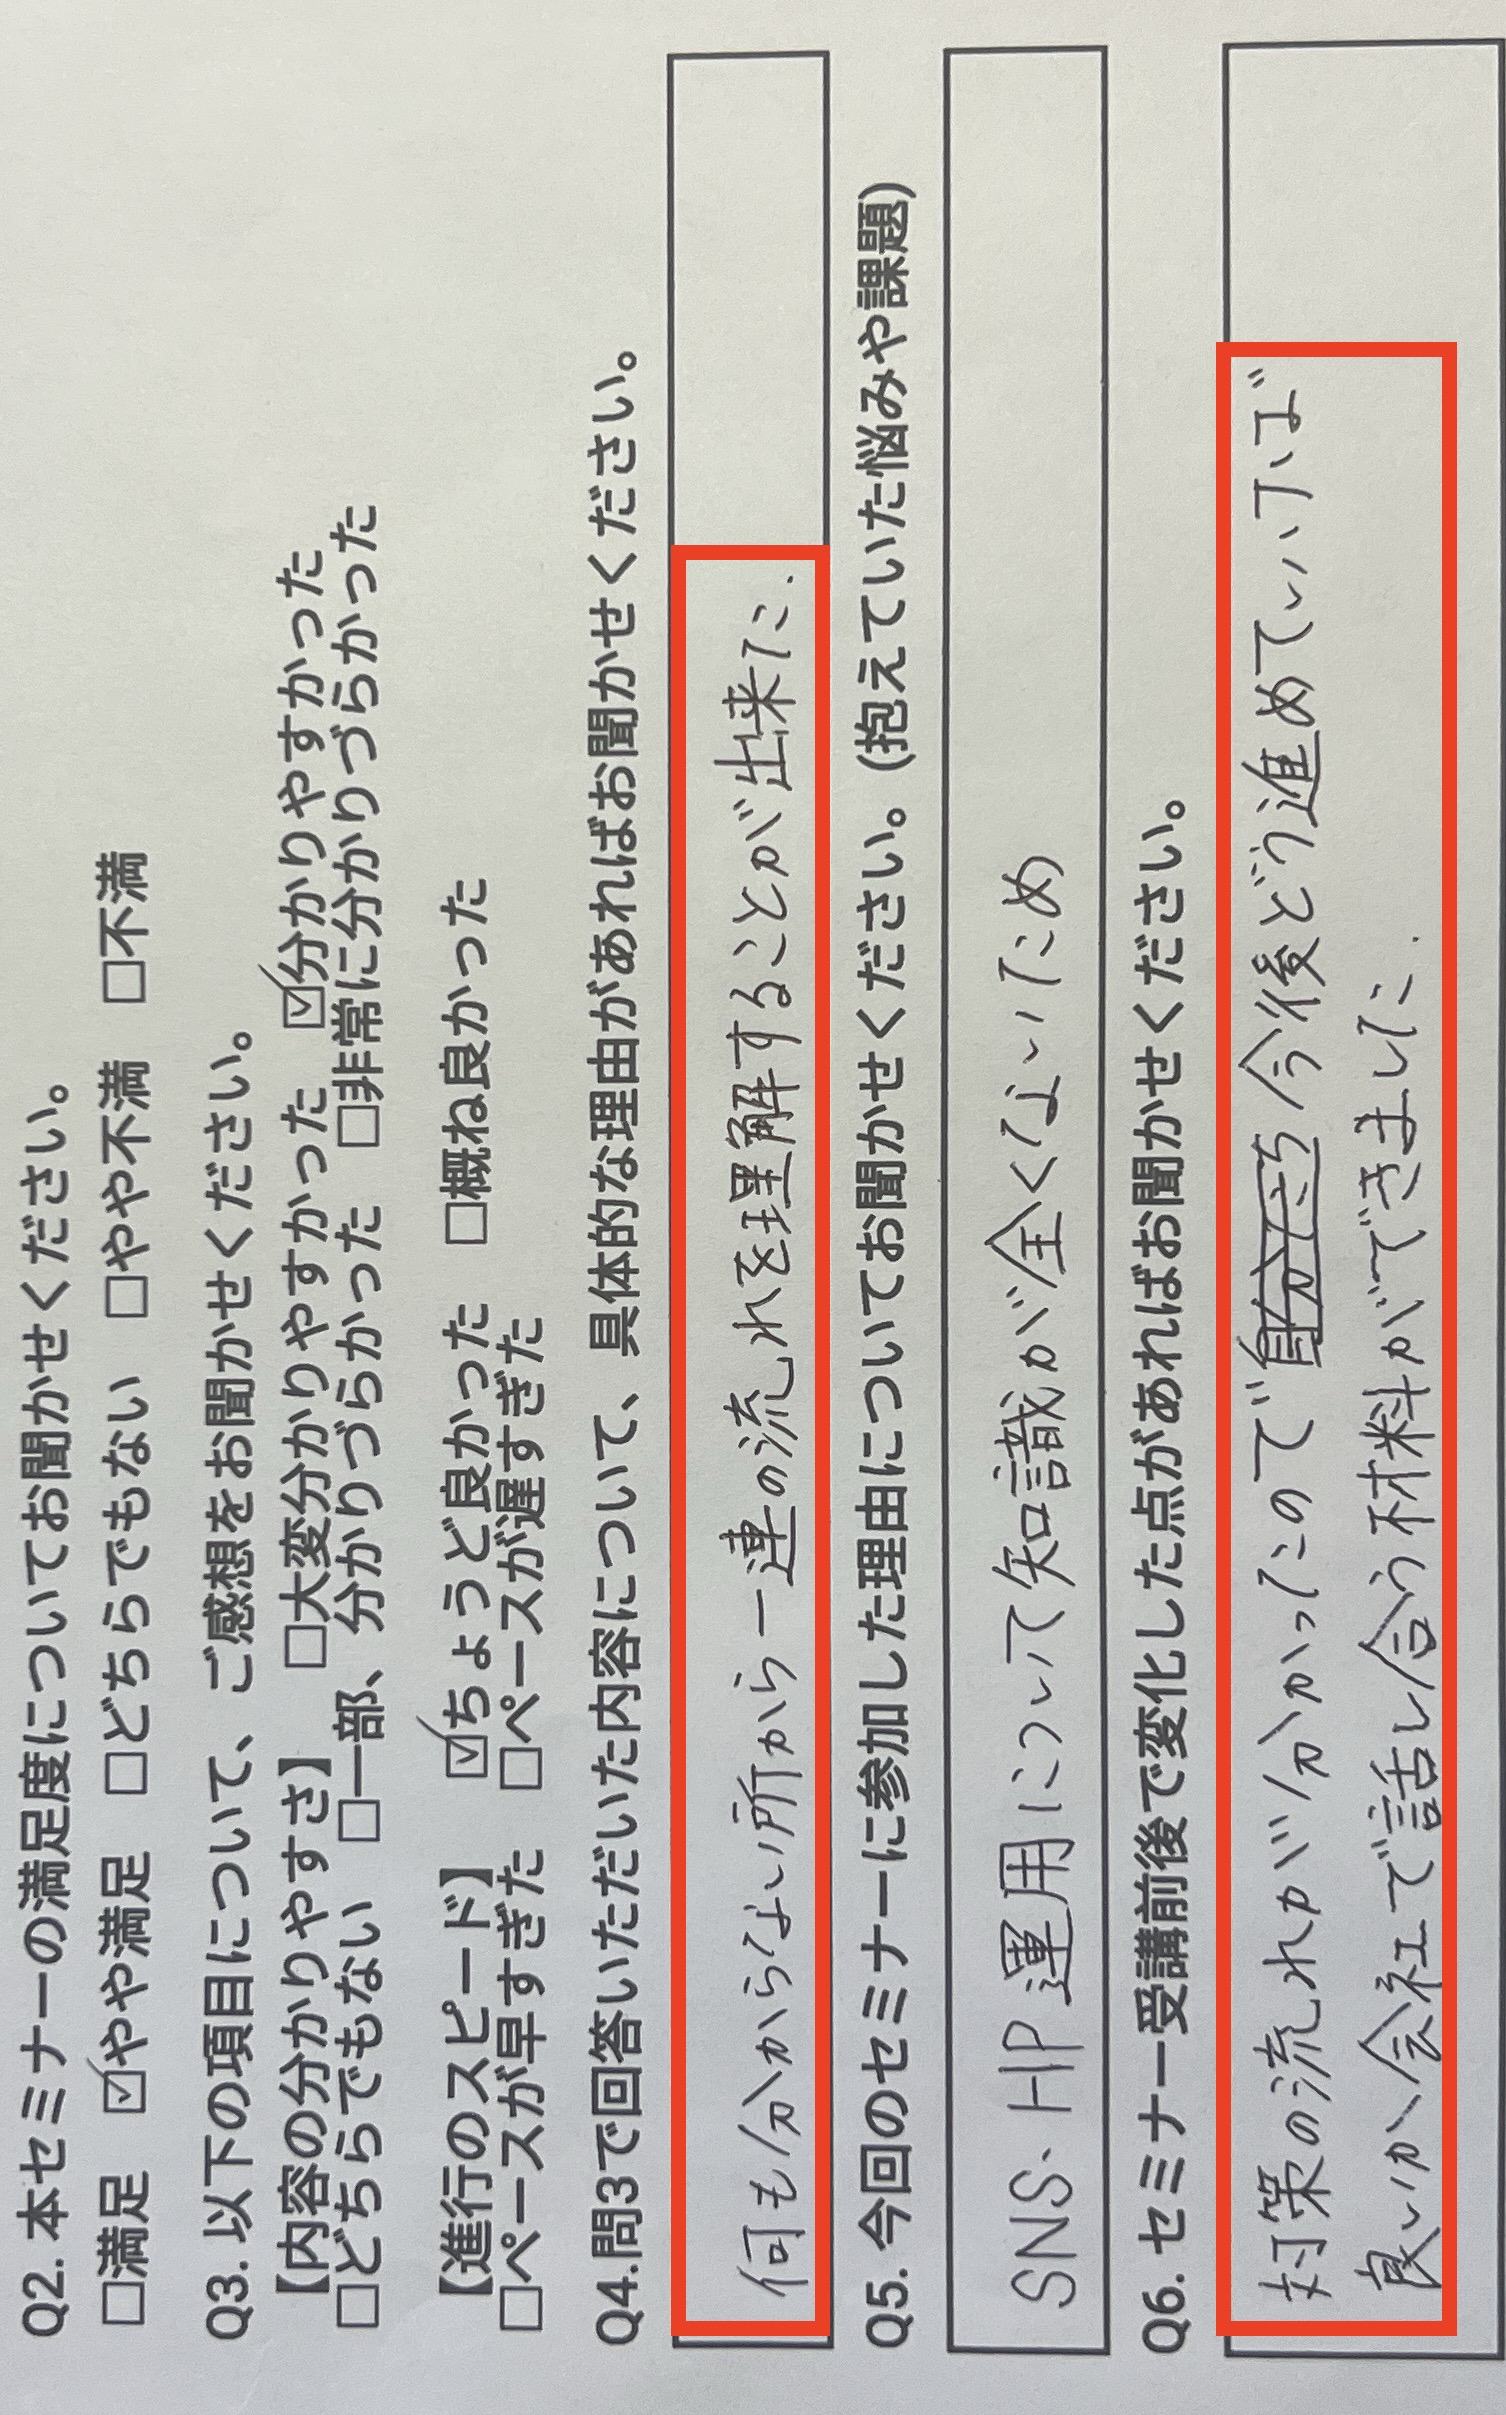 Q2. 本セミナーの満足度についてお聞かせください。
□満足 ☑やや満足 □どちらでもない □やや不満 □不満
Q3. 以下の項目について、ご感想をお聞かせください。
【内容の分かりやすさ】 □大変分かりやすかった ☑分かりやすかった
□どちらでもない □一部、分かりづらかった □非常に分かりづらかった
【進行のスピード】 ☑ちょうど良かった □概ね良かった
□ペースが早すぎた □ペースが遅すぎた
Q4.問3で回答いただいた内容について、具体的な理由があればお聞かせください。
何も分からない所から一連の流れを理解することが出来た.
Q5. 今回のセミナーに参加した理由についてお聞かせください。(抱えていた悩みや課題)
SNS、HP運用について知識が全くないため
Q6. セミナー受講前後で変化した点があればお聞かせください。
対策の流れが分かったので自分たち今後どう進めていけば
良いか、会社で話し合う材料ができました.